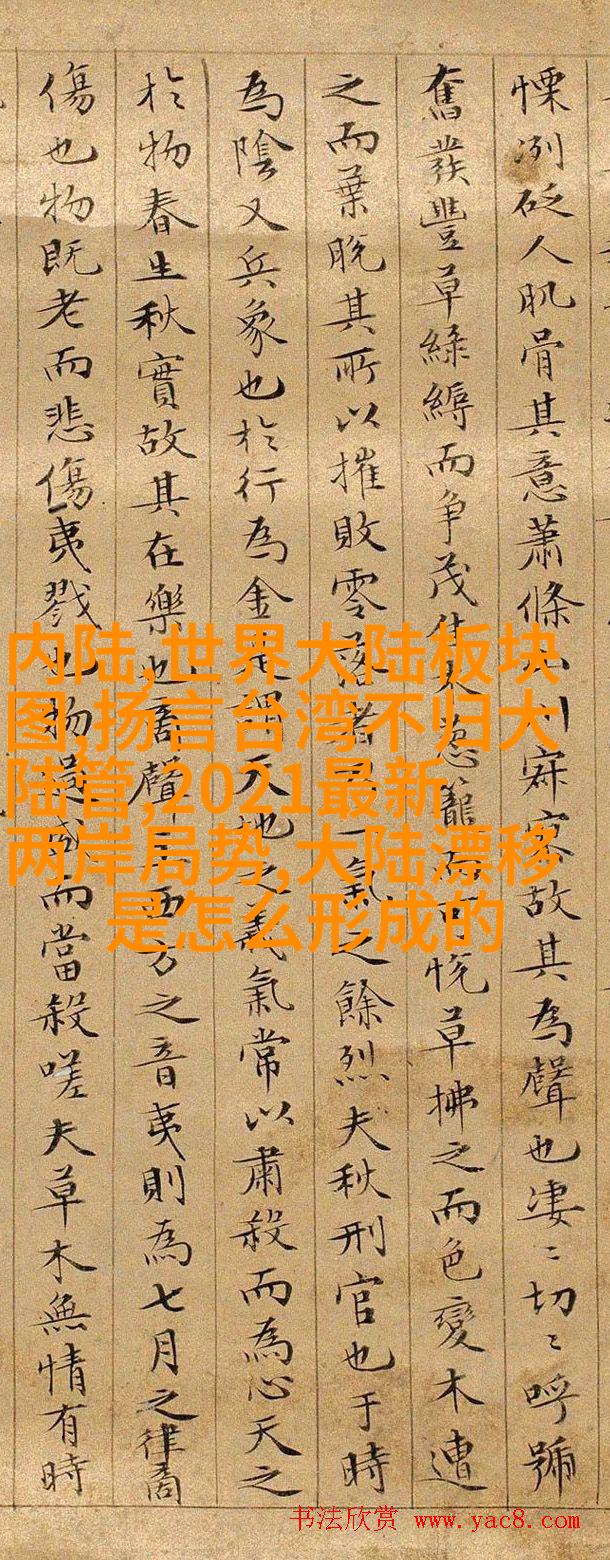 慄冽砭人肌骨其意蕭條山川寂寥故其為聲也凄〻切〻呼號
奮發豐草綠縟而爭茂佳木蔥蘢而可悅草拂之而色變木遭
之而葉脫其所以摧敗零落者乃一氣之餘烈夫秋刑官也于時
為陰又兵象也於行為金是謂天地之義氣常以肅殺而為心天之
於物春生秋實故其在樂也商聲主西方之音夷則為七月之律商
傷也物既老而悲傷夷戮也物過盛而當殺嗟夫草木無情有時
内陆,世界大陆板块
图,扬言台湾不归大
陆管,2021最新
两岸局势,大陆漂移
是怎么形成的
书法欣赏 www.yac8.com